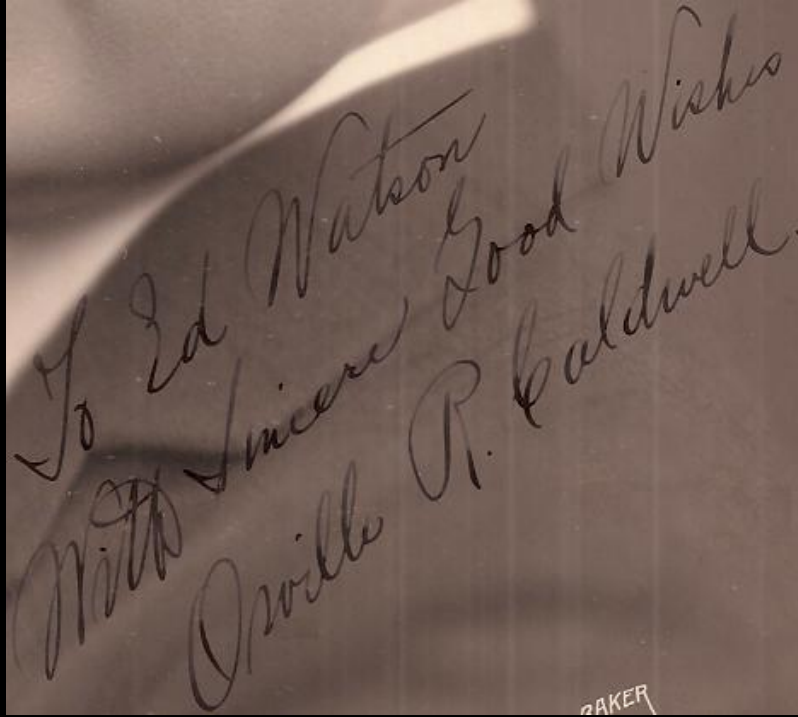 To Ed Watson
With Sincere Good Wishes
Orville R. Caldwell.
BAKER